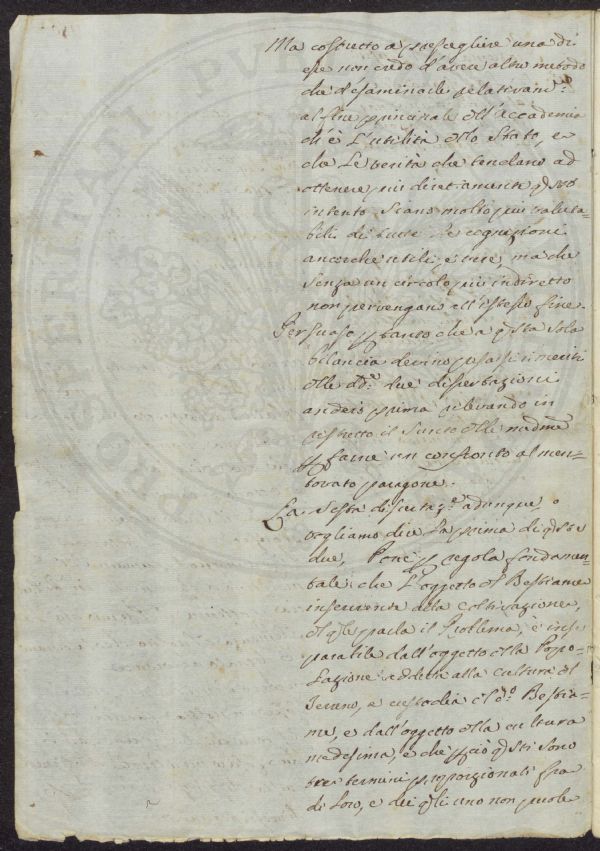 Ma costretto a prescegliere una di
esse non credo d'avere altro metodo
che d'esaminarle relativam.e
al fine principale dell'accademia
ch'è L'utilità dello Stato, e
che Le verità che tendano ad
ottenere più direttamente q.sto
intento siano molto più valuta=
bili di tutte le cognizioni
ancorche utili, e vere, ma che
senza un circolo più indiretto
non pervengano all'istesso fine.
Persuaso p tanto che a q.sta sola
bilancia devino pesarsi i meriti
delle dd.e due dissertazioni
anderò prima rilevando in
ristretto il Sunto delle med.me
p farne un confronto al men=
tovato paragone.
La sesta dissertaz.e adunque, o
vogliamo dire La prima di q.ste
due, Pone p regola fondamen=
tale che L'oggetto del Bestiame
inserviente alla coltivazione,
del q.le parla il Problema, è inse
parabile dall'oggetto della Popo=
lazione addetta alla cultura del
Terreno, e custodia del d.o Bestia=
me, e dall'oggetto della cultura
medesima, e che p ciò q.sti sono
tre termini proporzionali fra
di Loro, e dei q.li uno non puole